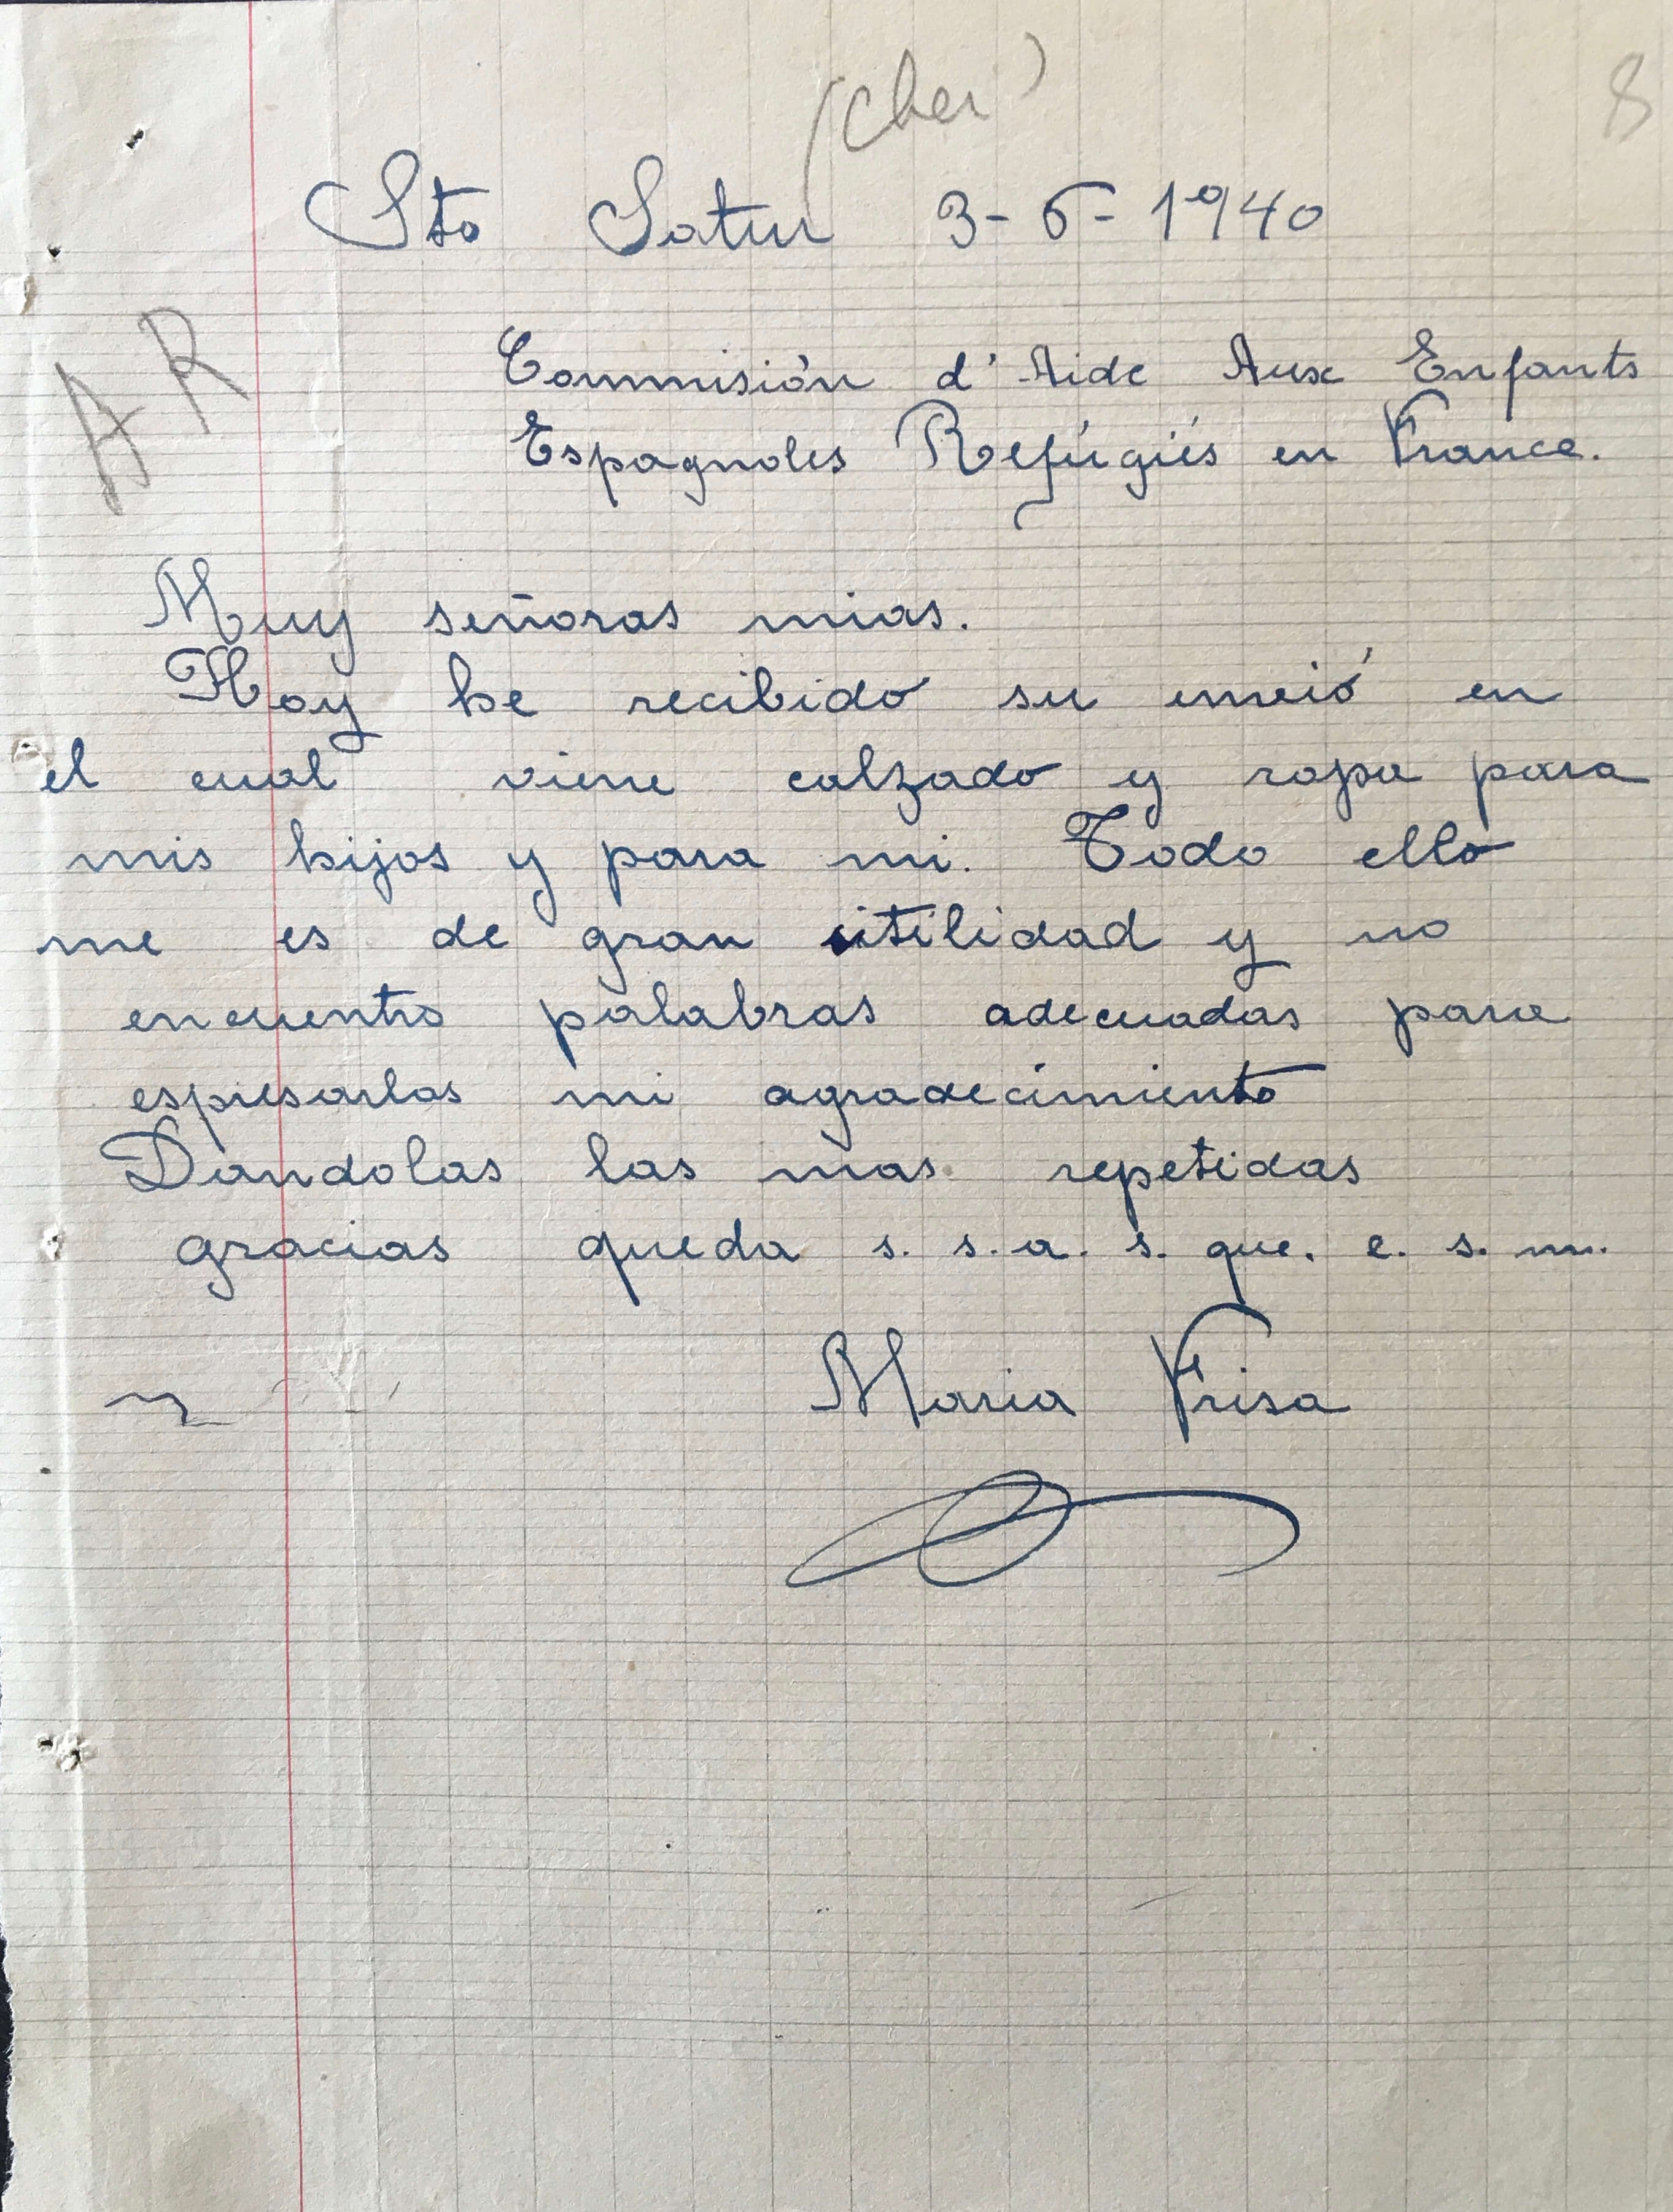 (Cher)
8
Sto Satur 3-6-1940
A R
Commisión d'Aide Aux Enfants
Espagnoles Refúgiés en France.
Muy señoras mias.
Hoy he recibido su envió en
el cual viene calzado y ropa para
mis hijos y para mi. Todo ello
me es de gran utilidad y no
encuentro palabras adecuadas para
espresarlas mi agradecimiento
Dandolas las mas repetidas
gracias queda s. s. a. s. que. e. s. m.
Maria Frisa